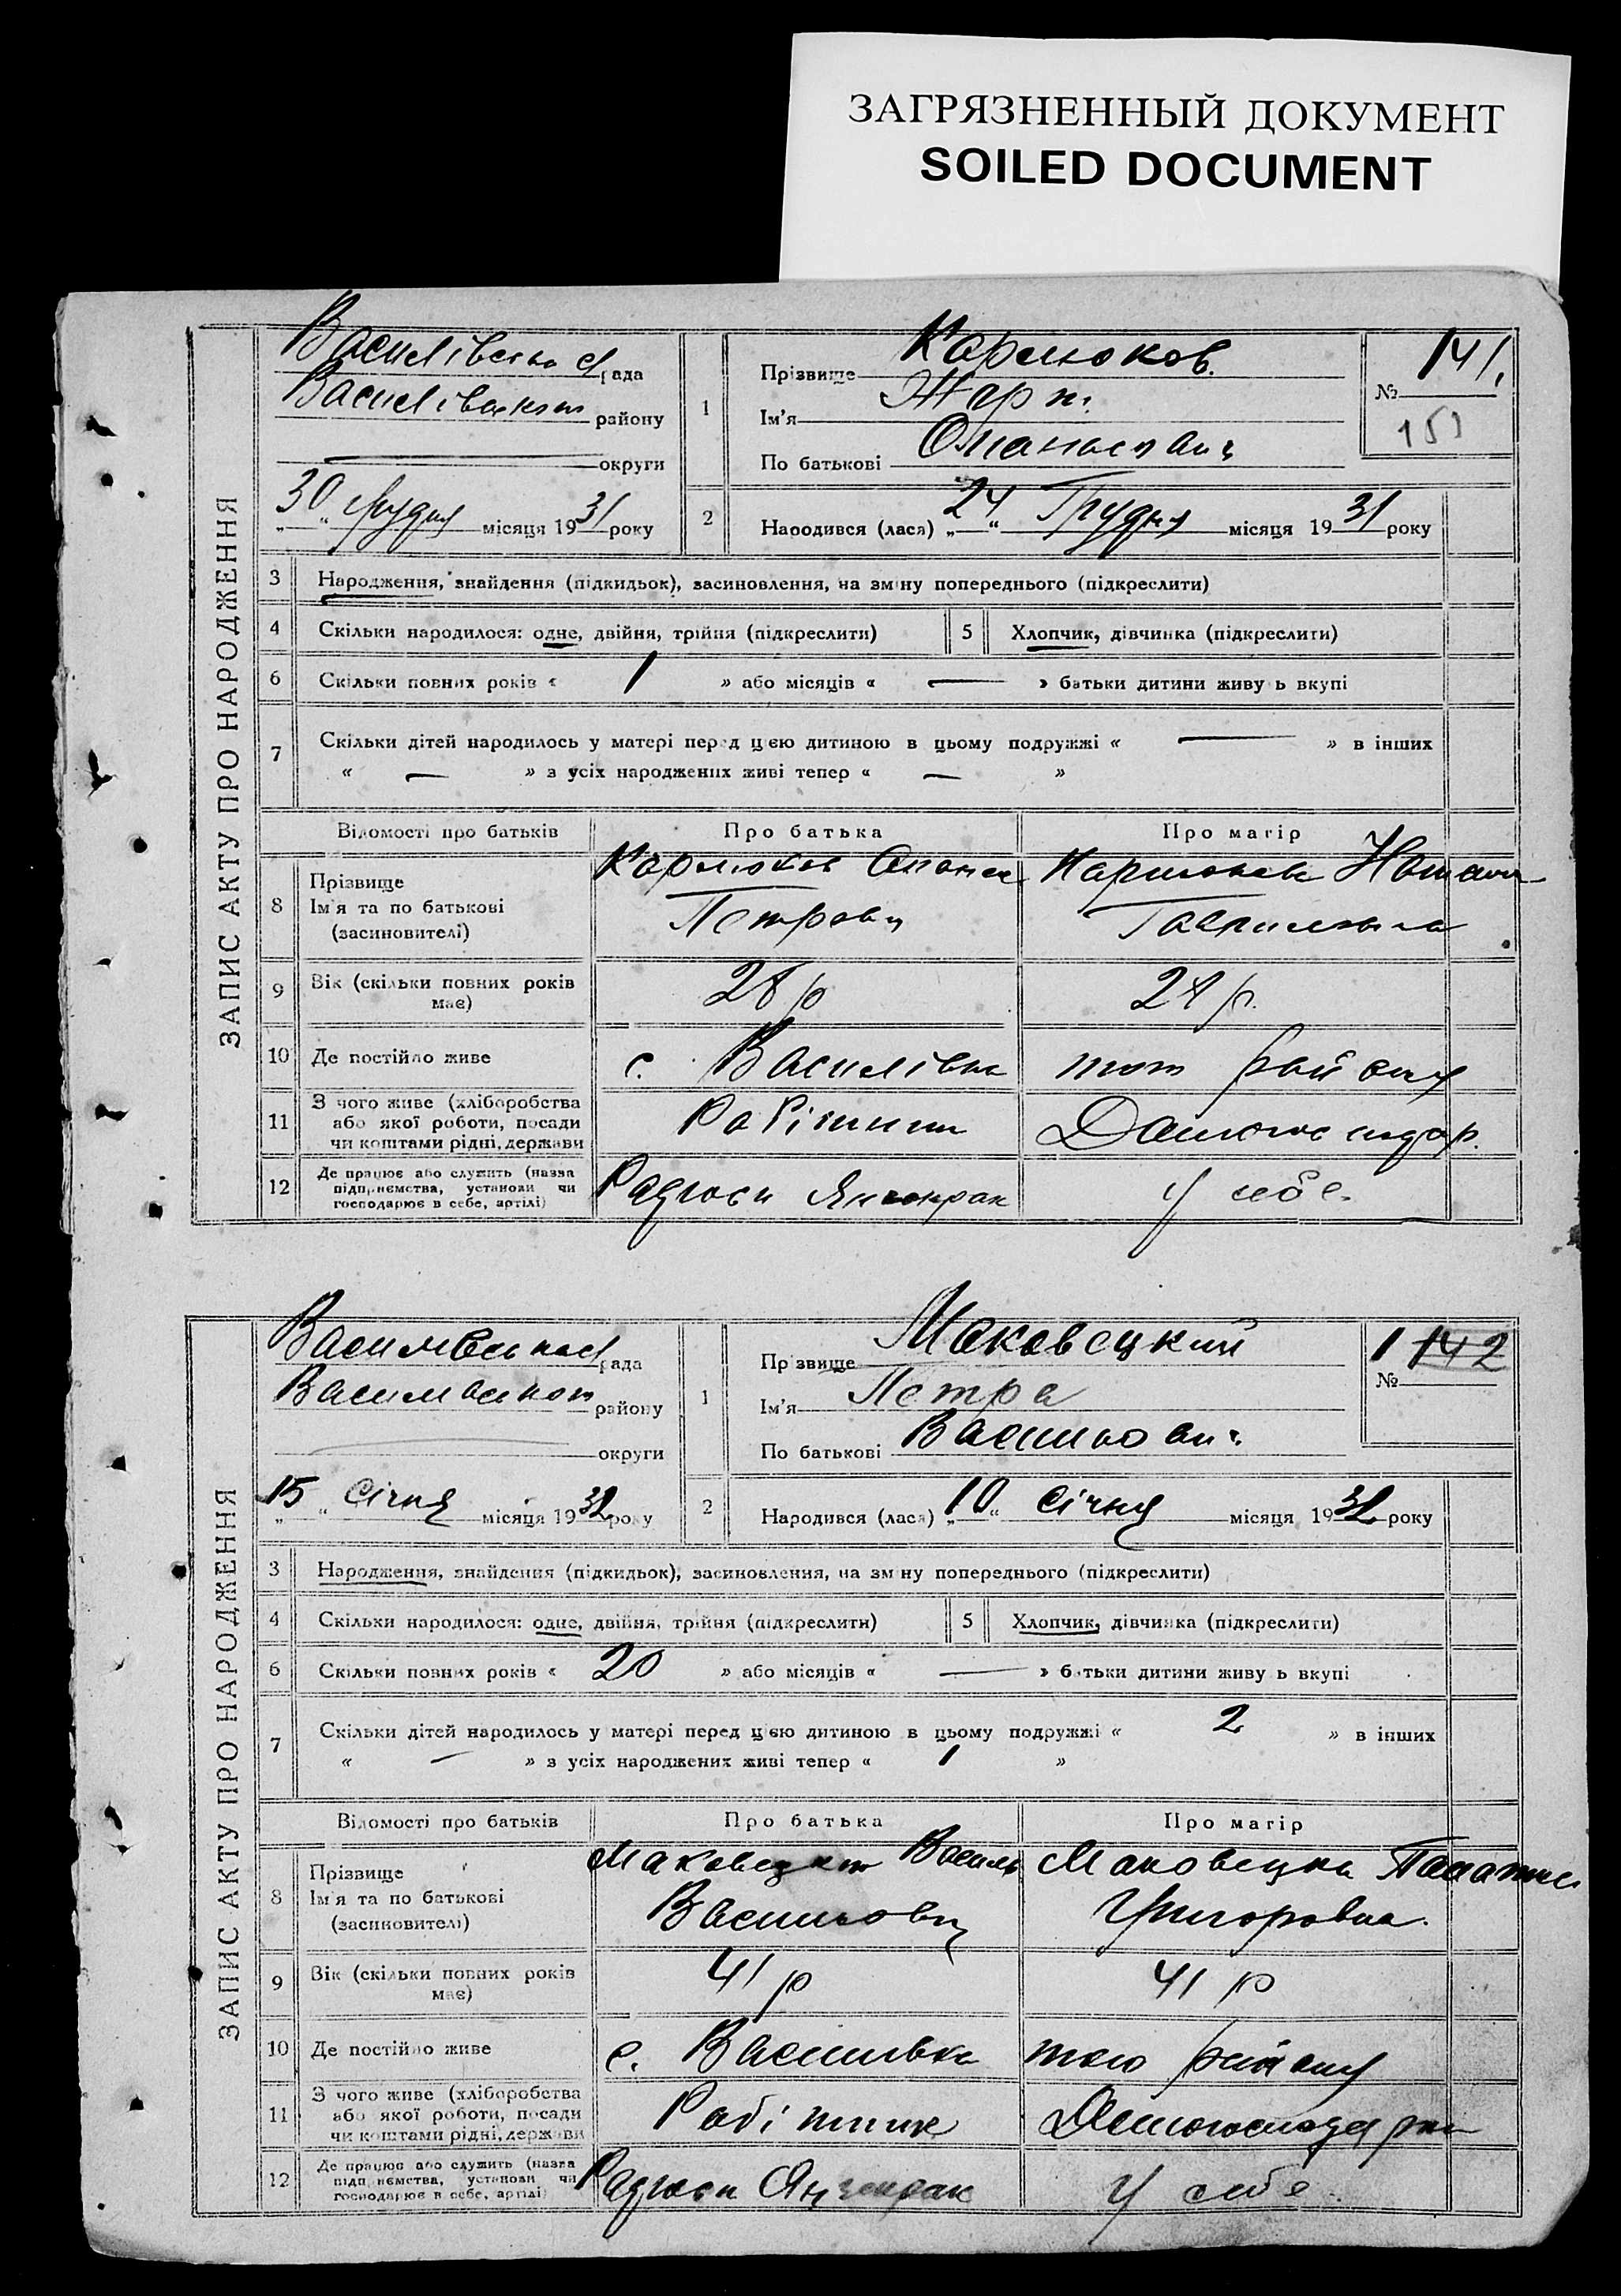 ЗАГРЯЗНЕННЫЙ ДОКУМЕНТ
SOILED DOCUMENT
ЗАПИС АКТУ ПРО НАРОДЖЕННЯ
Василівська рада
району
округи
30 грудня місяця 1931 року
1
Прізвище Кармюков.
Ім'я
По батькові
№ 141.
151
2
Народився (лася) „24“ Грудня місяця 1931 року
3 Народження, знайдення (підкидьок), засиновлення, на зміну попереднього (підкреслити)
4 Скільки народилося: одне, двійня, трійня (підкреслити) 5 Хлопчик, дівчинка (підкреслити)
6 Скільки повних років « 1 » або місяців « — » батьки дитини живуть вкупі
7 Скільки дітей народилось у матері перед цією дитиною в цьому подружжі « — » в інших
« — » з усіх народжених живі тепер « — »
Відомості про батьків Про батька Про матір
8 Прізвище
Ім'я та по батькові Петрович
(засиновителі)
9 Вік (скільки повних років має) 28 р 24 р.
10 Де постійно живе с. Василівка району
11 З чого живе (хліборобства або якої роботи, посади чи коштами рідні, держави Робітник Домогосподар.
12 Де працює або служить (назва підприємства, установи чи господарює в себе, артілі) у себе.
ЗАПИС АКТУ ПРО НАРОДЖЕННЯ
рада
району
округи
15 Січня місяця 1932 року
1
Прізвище Маковецкий
Ім'я Петро
По батькові Василькович
№ 142
2
Народився (лася) „10“ Січня місяця 1932 року
3 Народження, знайдення (підкидьок), засиновлення, на зміну попереднього (підкреслити)
4 Скільки народилося: одне, двійня, трійня (підкреслити) 5 Хлопчик, дівчинка (підкреслити)
6 Скільки повних років « 20 » або місяців « — » батьки дитини живуть вкупі
7 Скільки дітей народилось у матері перед цією дитиною в цьому подружжі « 2 » в інших
« — » з усіх народжених живі тепер « 1 »
Відомості про батьків Про батька Про матір
8 Прізвище Маковецкий Василь Маковецка
Ім'я та по батькові Григоровна.
(засиновителі)
9 Вік (скільки повних років має) 41 р 41 р
10 Де постійно живе с. Василівка того району
11 З чого живе (хліборобства або якої роботи, посади чи коштами рідні, держави Робітник Домогосподарка
12 Де працює або служить (назва підприємства, установи чи господарює в себе, артілі) у себе